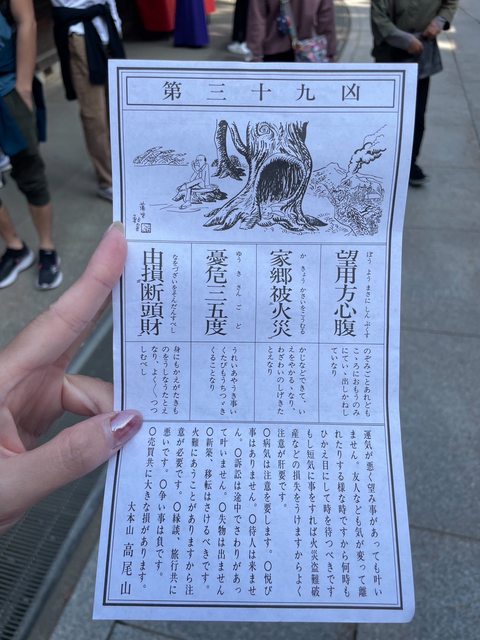 第三十九凶
ぼうようまさにしんぷくす
望用方心腹
のぞみごとあれども
こゝろにおもうのみ
にていゝ出しかねし
ていなり
かきょうかさいをこうむる
家郷被火災
かじなどできて、い
えをやかるゝなり、
わざわいのしげきた
とえなり
ゆうきさんごど
憂危三五度
うれいあやうき事い
くたびもうちつゞき
くることなり
なをづざいをそんだんすべし
由損断頭財
身にもかえがたきも
のをうしなうたとえ
なり、よく／＼つつ
しむべし
運気が悪く望み事があっても叶い
ません。友人なども気が変って離
れたりする様な時ですから何時も
ひかえ目にして時を待つべきです
もし短気に事をすれば火災盗難破
産などの損失をうけますからよく
注意が肝要です。
〇病気は注意を要します。〇悦び
事はありません。〇待人は来ませ
ん。〇訴訟は途中でさわりがあっ
て叶いません。〇失物は出ません
〇新築、移転はさけるべきです。
火難にあうことがありますから注
意が必要です。〇縁談、旅行共に
悪いです。〇争い事は負です。
〇売買共に大きな損があります。
大本山 高尾山